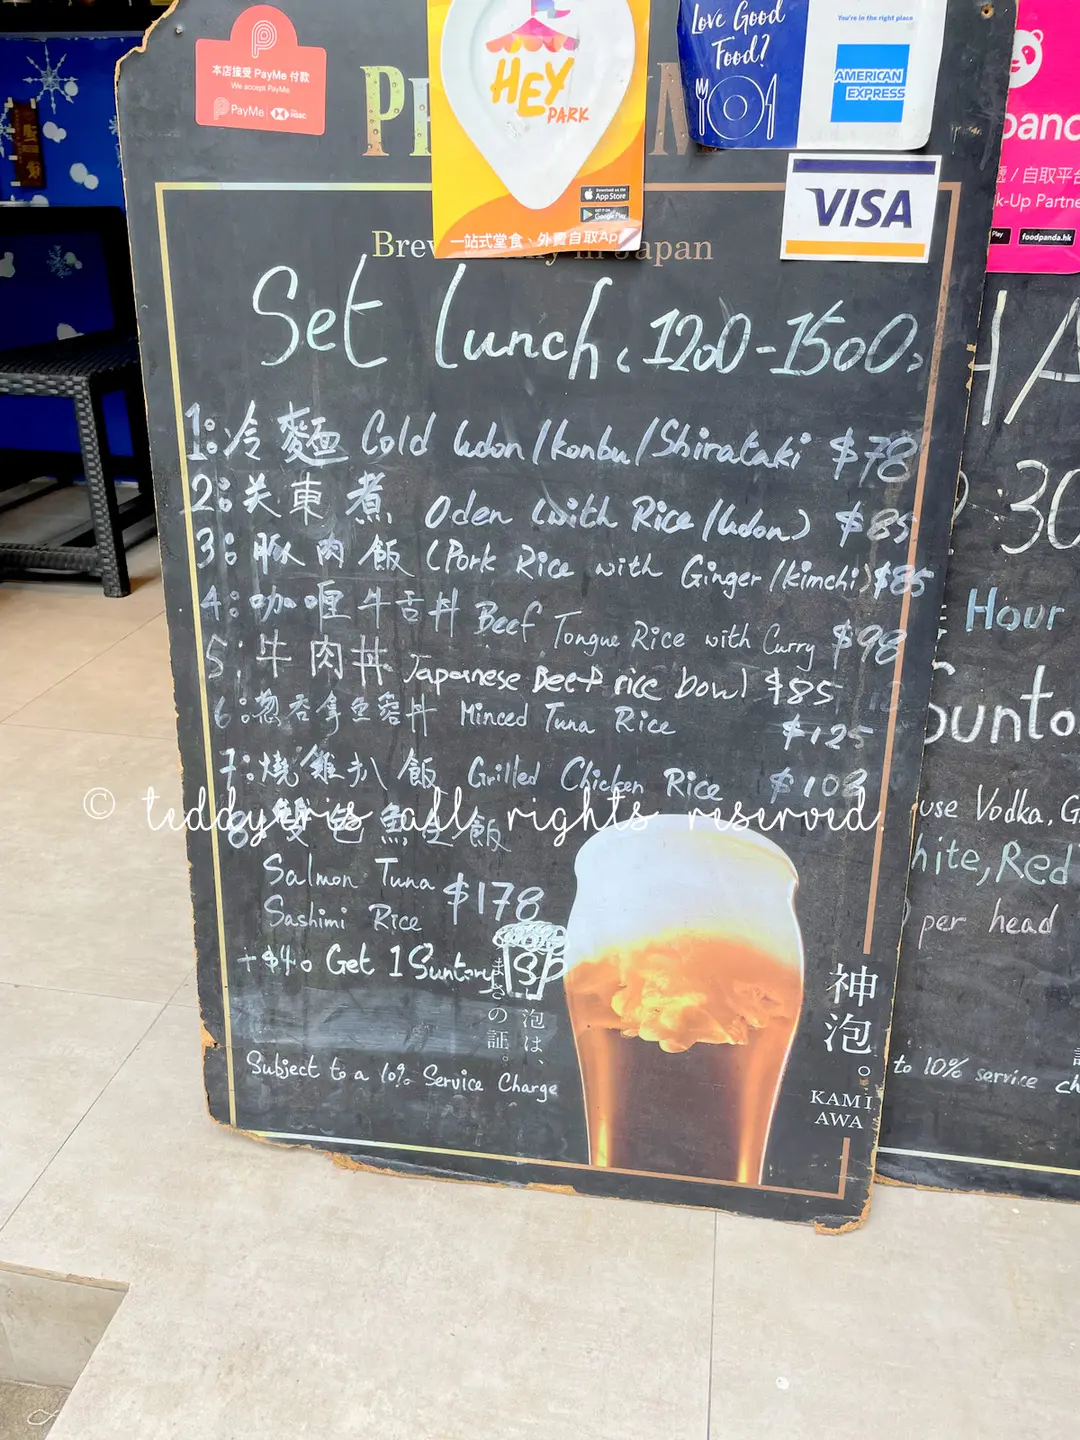 本店接受 PayMe 付款
We accept PayMe
PayMe HSBC
HEY
PARK
Download on the
App Store
GET IT ON
Google Play
一站式堂食、外賣自取App
Love Good
Food?
You're in the right place
AMERICAN
EXPRESS
VISA
/ 自取平台
k-Up Partne
foodpanda.hk
Japan
Set Lunch (1200-1500)
1: 冷麵 Cold Udon/Konbu/Shirataki $78
2: 关東煮 Oden (with Rice/Udon) $85
3: 豚肉飯 (Pork Rice with Ginger/kimchi) $85
4: 咖喱牛舌丼 Beef Tongue Rice with Curry $98
5: 牛肉丼 Japanese Beef rice bowl $85
6: 葱吞拿魚蓉丼 Minced Tuna Rice $125
7: 燒雞扒飯 Grilled Chicken Rice $108
© teddyiris all rights reserved.
8: 雙色魚生飯
Salmon Tuna
Sashimi Rice $178
+$40 Get 1 Suntory
泡は、
まさの証。
Subject to a 10% Service Charge
神泡。
KAMI
AWA
HA
:30
Hour
unto
use Vodka, G
hite, Red
per head
to 10% service ch